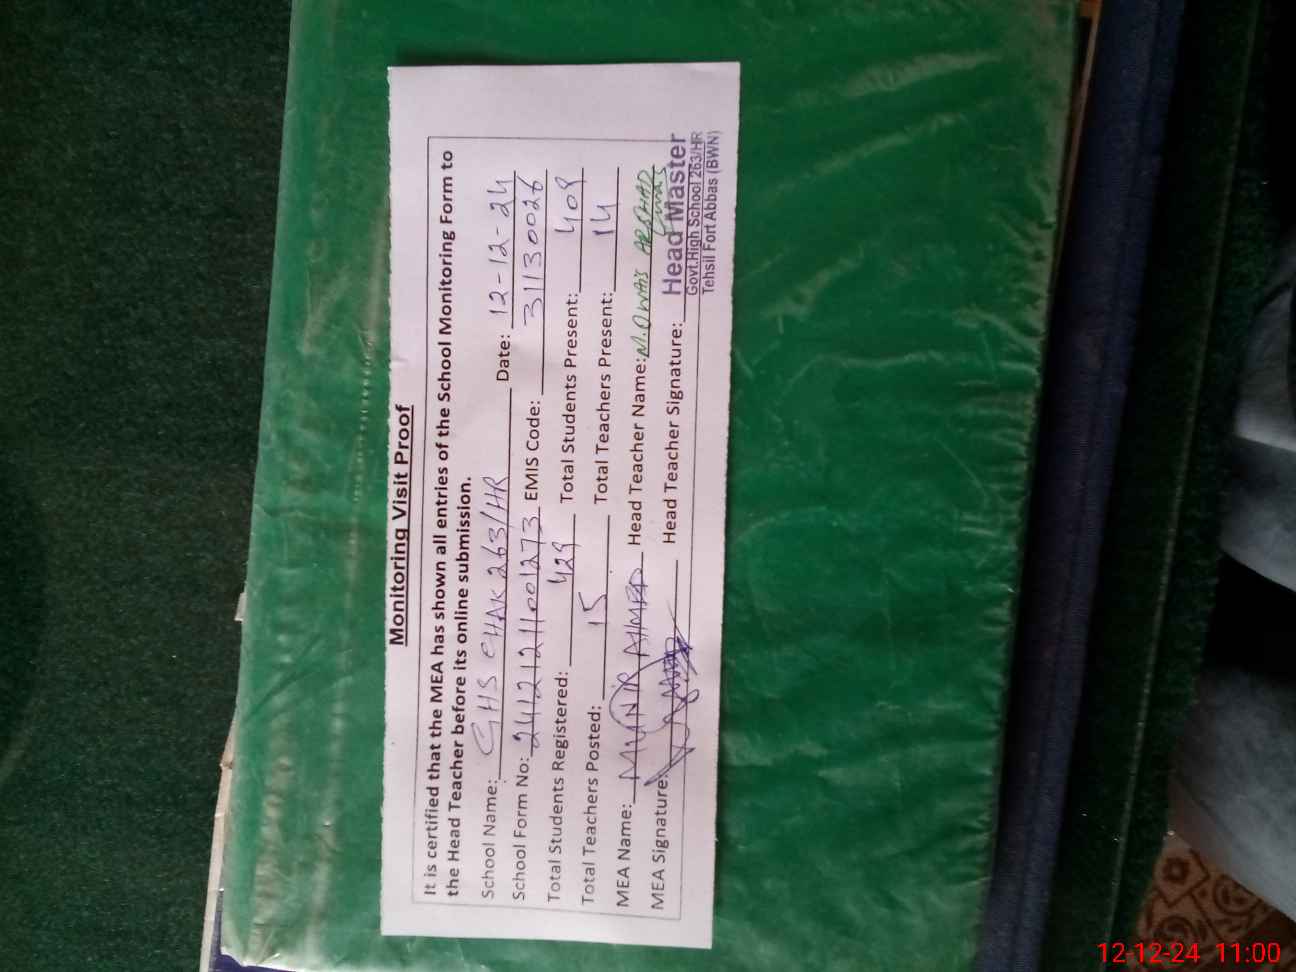 Monitoring Visit Proof
It is certified that the MEA has shown all entries of the School Monitoring Form to
the Head Teacher before its online submission.
School Name: GHS CHAK 263/HR Date: 12-12-24
School Form No: 24121211001273 EMIS Code: 31130026
Total Students Registered: 429 Total Students Present: 409
Total Teachers Posted: 15 Total Teachers Present: 14
MEA Name: MUNIR AHMAD Head Teacher Name: M.OWAIS ARSHAD
MEA Signature: Head Teacher Signature:
Head Master
Govt.High School 263/HR
Tehsil Fort Abbas (BWN)
12-12-24 11:00